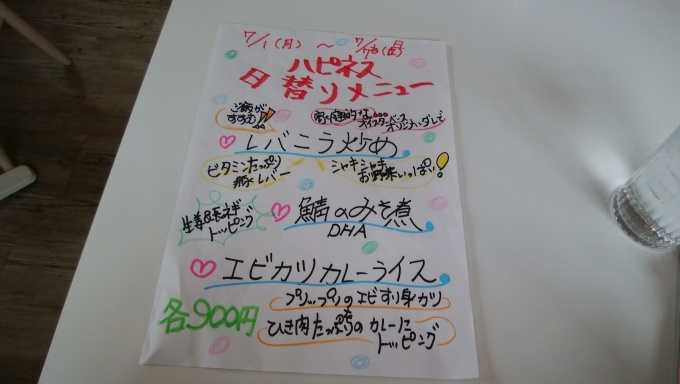 7/1(月) ～ 7/
ハピネス
日替りメニュー
ご飯が
すすむ!!
家庭的な
オイスターソース
オリジナルダレで
レバニラ炒め
ビタミンたっぷり
豚レバー
シャキシャキ
お野菜いっぱい!
生姜&長ネギ
トッピング
鯖のみそ煮
DHA
エビカツカレーライス
プリップリのエビすり身カツ
ひき肉たっぷりのカレーに
トッピング
各900円